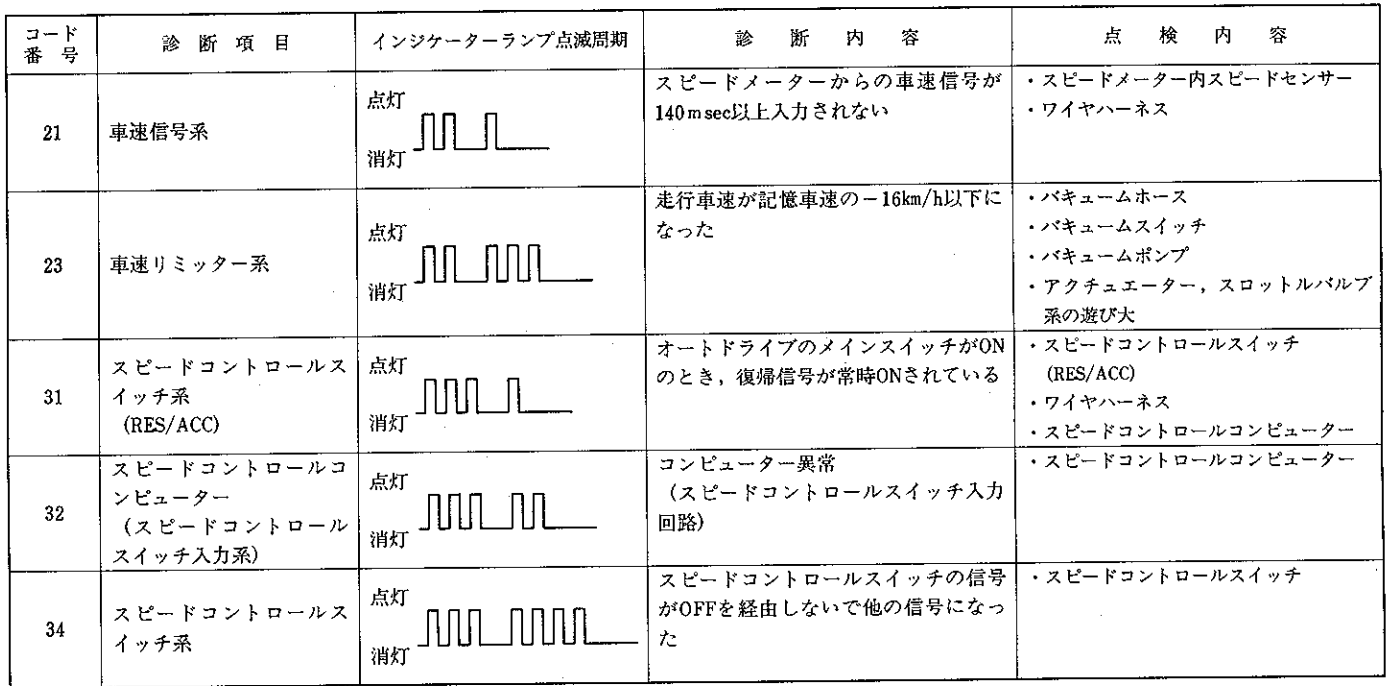 コード
番号
診断項目
インジケーターランプ点滅周期
診断内容
点検内容
21
車速信号系
点灯
消灯
スピードメーターからの車速信号が
140msec以上入力されない
・スピードメーター内スピードセンサー
・ワイヤハーネス
23
車速リミッター系
点灯
消灯
走行車速が記憶車速の－16km/h以下に
なった
・バキュームホース
・バキュームスイッチ
・バキュームポンプ
・アクチュエーター，スロットルバルブ
系の遊び大
31
スピードコントロールス
イッチ系
(RES/ACC)
点灯
消灯
オートドライブのメインスイッチがON
のとき，復帰信号が常時ONされている
・スピードコントロールスイッチ
(RES/ACC)
・ワイヤハーネス
・スピードコントロールコンピューター
32
スピードコントロールコ
ンピューター
(スピードコントロール
スイッチ入力系)
点灯
消灯
コンピューター異常
(スピードコントロールスイッチ入力
回路)
・スピードコントロールコンピューター
34
スピードコントロールス
イッチ系
点灯
消灯
スピードコントロールスイッチの信号
がOFFを経由しないで他の信号になっ
た
・スピードコントロールスイッチ